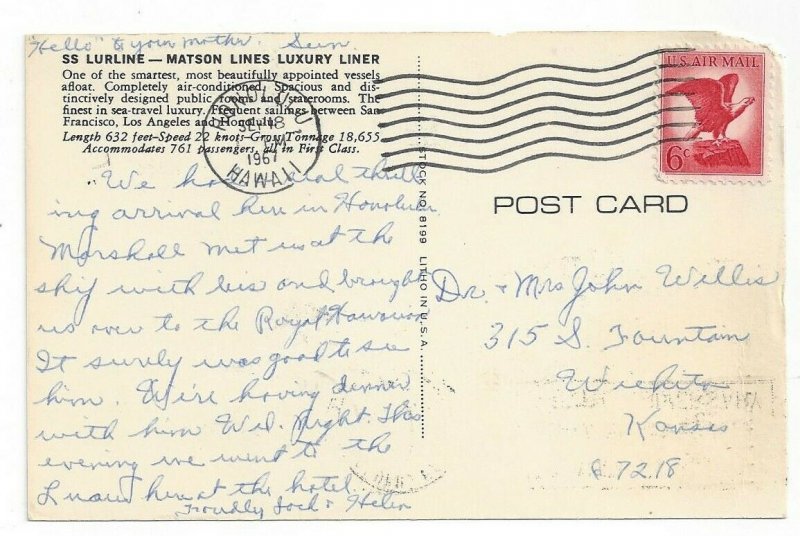 "Hello" to your mother.
SS LURLINE — MATSON LINES LUXURY LINER
One of the smartest, most beautifully appointed vessels
afloat. Completely air-conditioned. Spacious and dis-
tinctively designed public rooms and staterooms. The
finest in sea-travel luxury. Frequent sailings between San
Francisco, Los Angeles and Honolulu.
Length 632 feet-Speed 22 knots-Gross Tonnage 18,655
Accommodates 761 passengers, all in First Class.
HONOLULU
SEP 18
PM
1967
HAWAII
U.S. AIR MAIL
6c
"We had a real thrill
ing arrival here in Honolulu
Marshall met us at the
ship with leis and brought
us over to the Royal Hawaiian
It surely was good to see
him. We're having dinner
with him Wed. Night. This
evening we went to the
Luau here at the hotel.
Jack & Helen
STOCK NO. 8199 LITHO IN U.S.A.
POST CARD
Dr. & Mrs John Willis
315 S. Fountain
Wichita
Kansas
67218